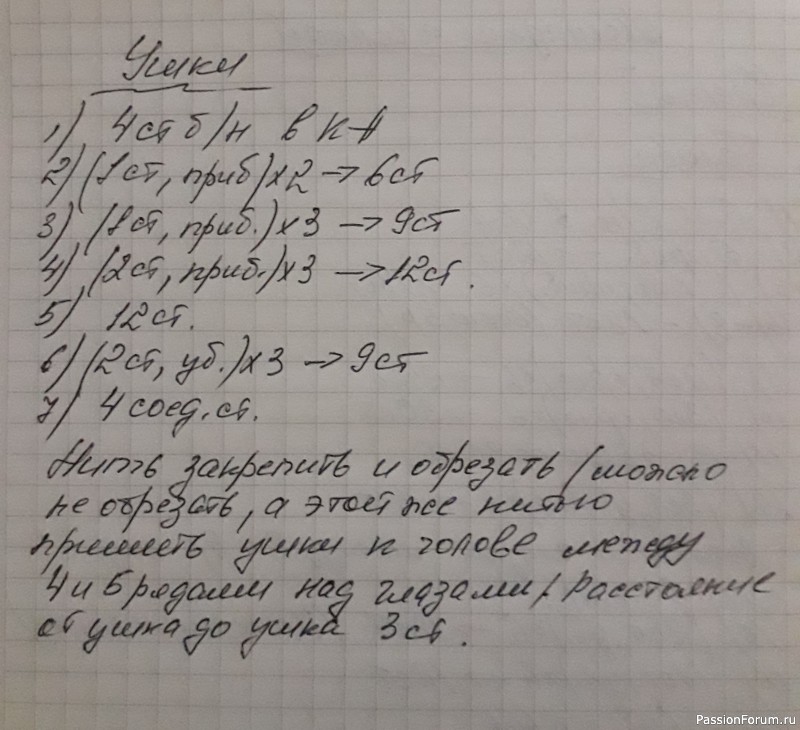 Ушки
1) 4ст б/н в КА
2) (1ст, приб)х2 → 6ст
3) (1ст, приб.)х3 → 9ст
4) (2ст, приб.)х3 → 12ст.
5) 12ст.
6) (2ст, уб.)х3 → 9ст
7) 4 соед.ст.
Нить закрепить и обрезать /можно
не обрезать, а этой же нитью
пришить ушки к голове между
4 и 5 рядами над глазами/. Расстояние
от ушка до ушка 3ст.
PassionForum.ru